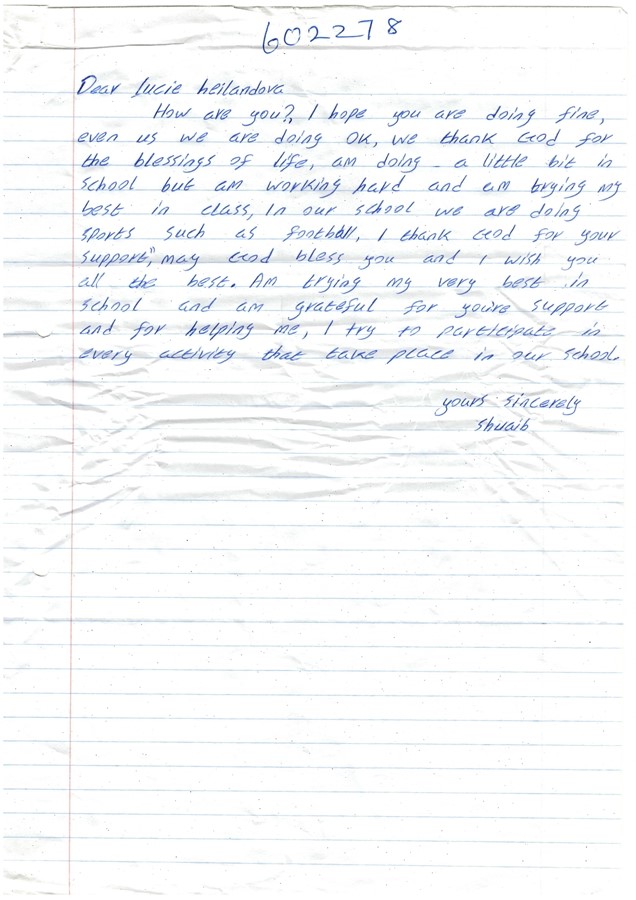 602278
Dear Lucie heilandova
How are you?, I hope you are doing fine,
even us we are doing OK, we thank God for
the blessings of life, am doing a little bit in
school but am working hard and am trying my
best in class, In our school we are doing
sports such as football, I thank God for your
support," may God bless you and I wish you
all the best. Am trying my very best in
school and am grateful for you're support
and for helping me, I try to participate in
every activity that take place in our school.
yours sincerely
Shuaib